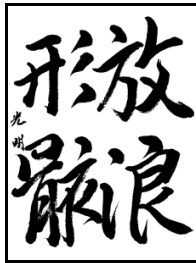 放浪
形骸
光明